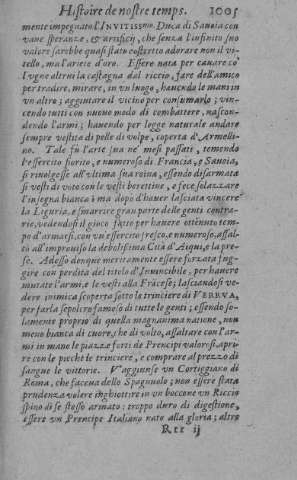 Histoire de nostre temps. 1005
mente impegnato l'INVITISSmo. Duca di Sauoia con
vane speranze, & artificij, che senza l'infinito suo
valore sarebbe quasi stato costretto adorare non il vi-
tello, ma l'ariete d'oro. Essere nata per cauare co'
l'vgne altrui la castagna dal riccio, fare dell'amico
per tradire, mirare, in vn luogo, hauendo le mani in
vn altro; aggiutare il vicino per consumarlo; vin-
cendo tutti con nuouo modo di combattere, nascon-
dendo l'armi; hauendo per legge naturale andare
sempre vestita di pelle di volpe, coperta d'Armelli-
no. Tale fù l'arte sua ne' mesi passati, temendo
l'essercito fiorito, e numeroso di Francia, e Sauoia,
si riuolgesse all'vltima sua roina, essendo disarmata
si vestì di voto con le vesti borettine, e fece solazzare
l'insegna bianca; ma dopo d'hauer lasciata vincere
la Liguria, e smarrire gran parte delle genti contra-
rie, vedendosi il gioco fatto per hauere ottenuto tempo
d'armarsi, con vn essercito fresco, e numeroso, assal-
tò all'improuiso la debolissima Città d'Aiqui, e la pre-
se. Adesso donque meritamente essere forzata fug-
gire con perdita del titolo d'Inuincibile, per hauere
mutate l'armi, e le vesti alla Fràcese; lasciandosi ve-
dere inimica scoperta sotto le trinciere di VERRVA,
per farla sepolcro famoso di tutte le genti; essendo so-
lamente proprio di quella magnanima natione, non
meno bianca di cuore, che di volto, assaltare con l'ar-
mi in mano le piazze forti de Prencipi valorosi, apri-
re con le picche le trinciere, e comprare al prezzo di
sangue le vittorie. V'aggiunse vn Cortiggiano di
Roma, che faceua dello Spagnuolo; non essere stata
prudenza volere inghiottire in vn boccone vn Riccio
spino di se stosso armato: troppo duro di digestione,
essere vn Prencipe Italiano nato alla gloria; altro
Rrr ij